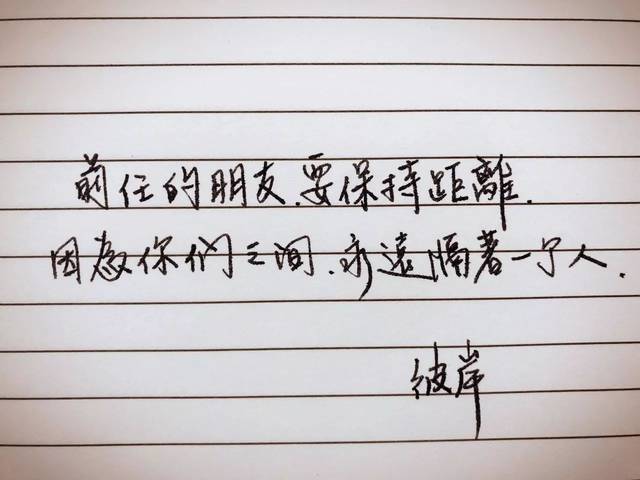 前任的朋友.要保持距離.
因為你們之间.永遠隔著一个人.
彼岸